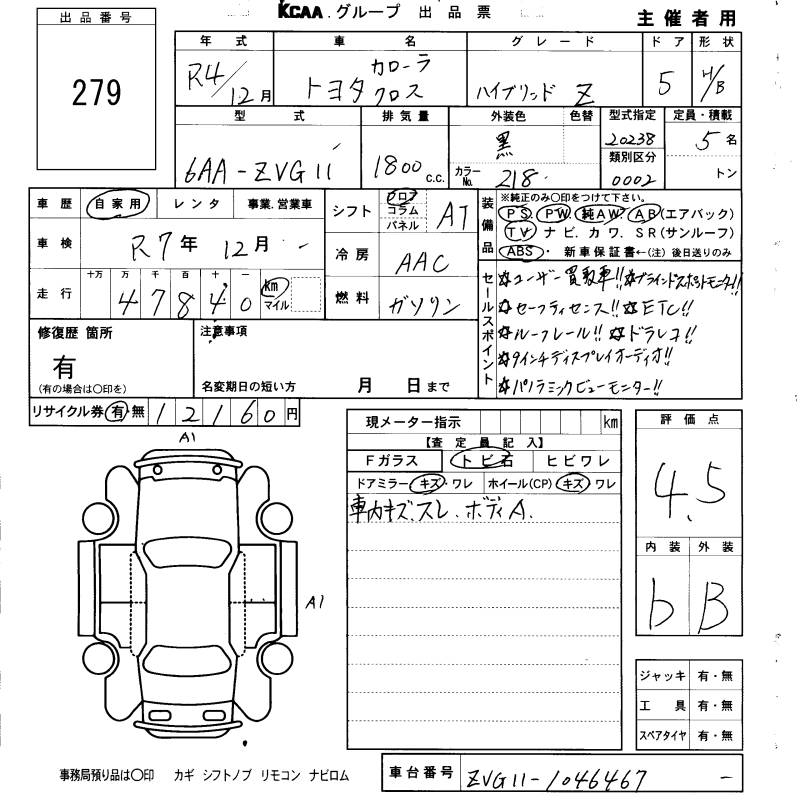 KCAA.グループ 出品票
主催者用
出品番号
279
年式 車名 グレード ドア 形状
R4/12月 トヨタ カローラクロス ハイブリッド Z 5 H/B
型式 排気量 外装色 色替 型式指定 定員・積載
6AA-ZVG11 1800c.c. 黒 20238 5名
カラーNo. 218 類別区分 0002 トン
車歴 自家用 レンタ 事業.営業車
車検 R7年12月
走行 十万 万 千 百 十 一
4 7 8 4 0 km マイル
シフト フロア コラム パネル AT
冷房 AAC
燃料 ガソリン
装備品 ※純正のみ○印をつけて下さい。
PS PW 純AW AB(エアバック)
TV ナビ.カワ.SR(サンルーフ)
ABS・新車保証書←(注)後日送りのみ
セールスポイント
☆ユーザー買取車!!☆ブラインドスポットモニタ!!
☆セーフティセンス!!☆ETC!!
☆ルーフレール!!☆ドラレコ!!
☆9インチディスプレイオーディオ!!
☆パノラミックビューモニター!!
修復歴 箇所
有
(有の場合は○印を)
注意事項
名変期日の短い方 月 日まで
リサイクル券 有・無 12160円
現メーター指示 km
【査定員記入】
Fガラス トビ石 ヒビワレ
ドアミラー キズ・ワレ ホイール(CP) キズ ワレ
車内キズ.スレ.ボディA.
評価点
4.5
内装 外装
b B
A1
A1
ジャッキ 有・無
工具 有・無
スペアタイヤ 有・無
事務局預り品は○印 カギ シフトノブ リモコン ナビロム
車台番号 ZVG11-1046467 -